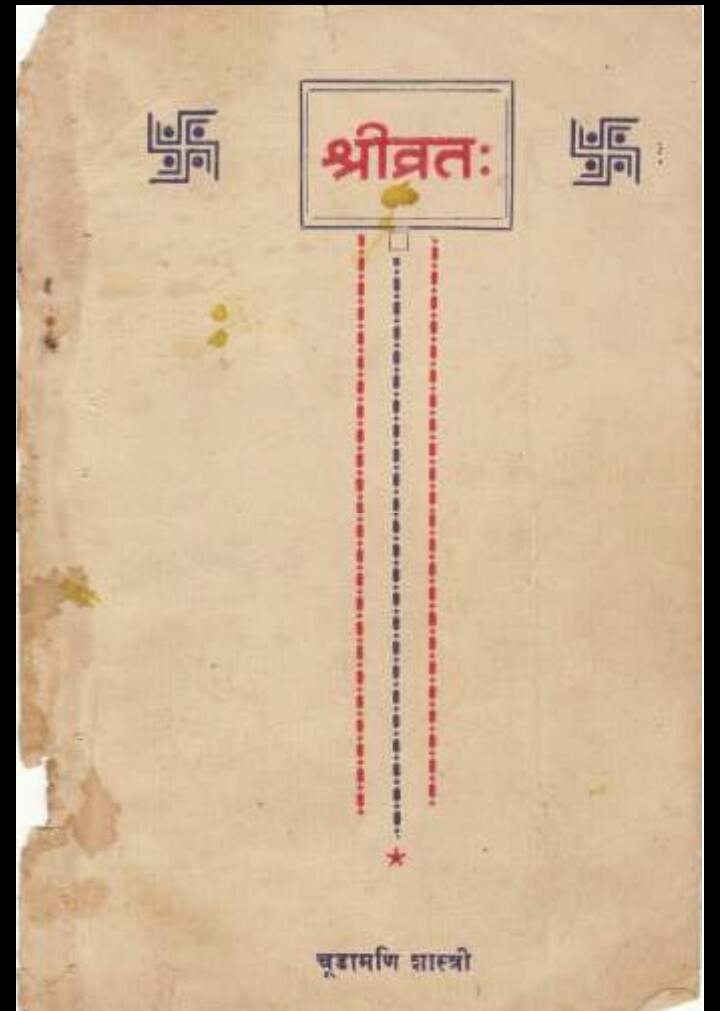 श्रीव्रतः
चूडामणि शास्त्री